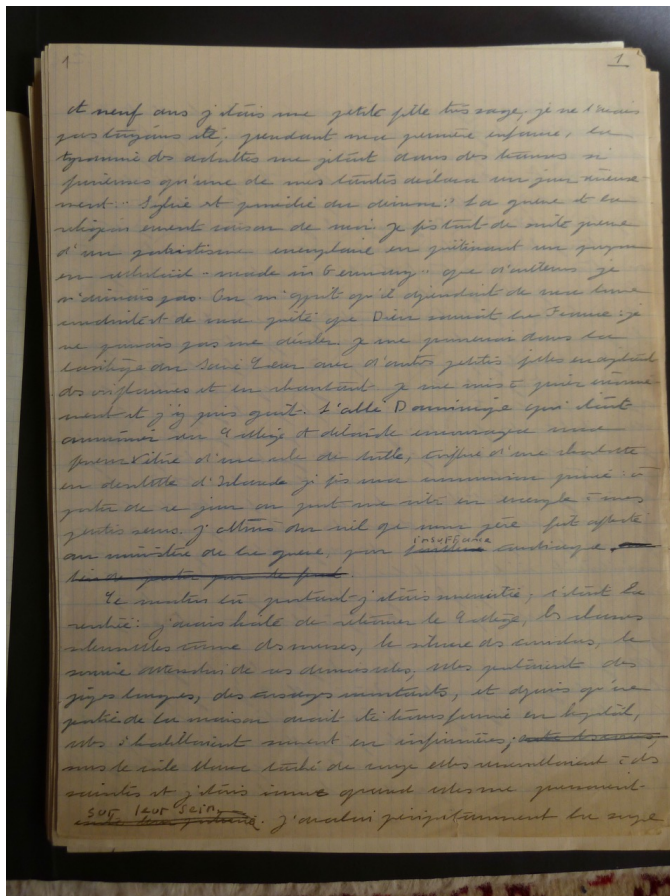 1 1
A neuf ans j'étais une petite fille très sage; je ne l'avais
pas toujours été; pendant ma première enfance, la
tyrannie des adultes me jetait dans des transes si
furieuses qu'une de mes tantes déclara un jour sérieuse-
ment: "Sylvie est possédée du démon". La guerre et la
religion eurent raison de moi. Je fis tout de suite preuve
d'un patriotisme exemplaire en piétinant un poupon
en celluloïd "made in Germany" que d'ailleurs je
n'aimais pas. On m'apprit qu'il dépendait de ma bonne
conduite et de ma piété que Dieu sauvât la France: je
ne pouvais pas me dérober. Je me promenai dans la
basilique du Sacré Coeur avec d'autres petites filles en agitant
des oriflammes et en chantant. Je me mis à prier énormé-
ment et j'y pris goût. L'abbé Dominique qui était
aumônier du Collège Adélaïde encouragea ma
ferveur. Vêtue d'une robe de tulle, coiffée d'une charlotte
en dentelle d'Irlande je fis ma communion privée: à
partir de ce jour on put me citer en exemple à mes
petites soeurs. J'obtins du ciel que mon père fût affecté
au ministère de la guerre, pour insuffisance cardiaque
Ce matin là pourtant j'étais surexcitée; c'était la
rentrée: j'avais hâte de retrouver le Collège, les classes
solennelles comme des messes, le silence des couloirs, le
sourire attendri de ces demoiselles; elles portaient des
jupes longues, des corsages montants, et depuis qu'une
partie de la maison avait été transformée en hôpital,
elles s'habillaient souvent en infirmières;
sous le voile blanc taché de rouge elles ressemblaient à des
saintes et j'étais émue quand elles me pressaient
sur leur sein. J'avalai précipitamment la soupe